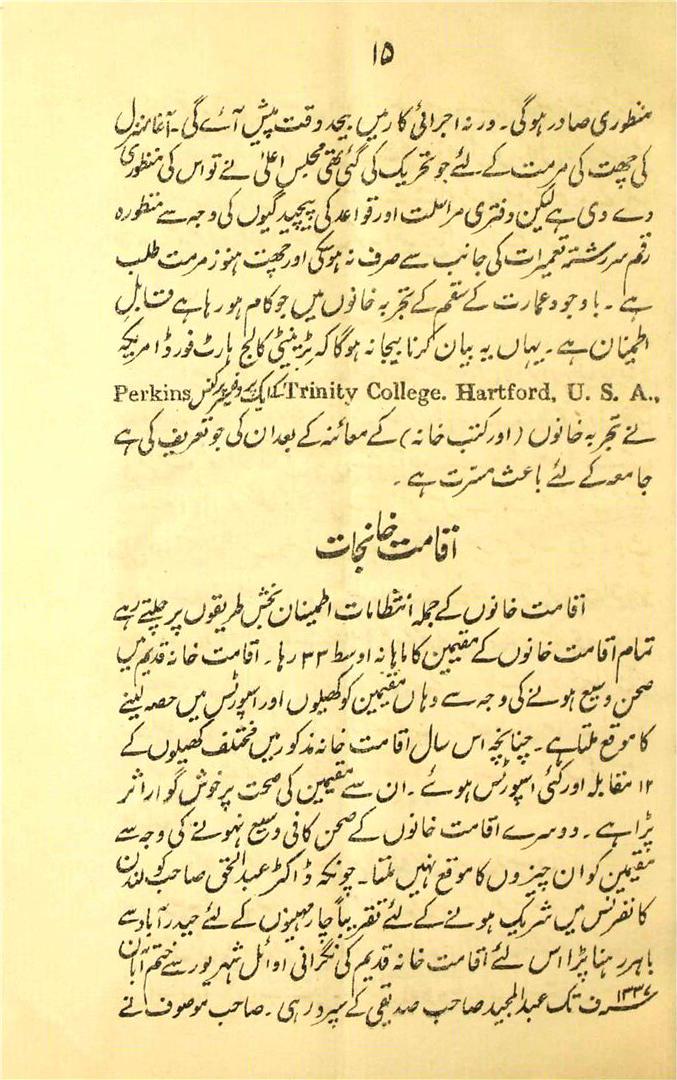 ۱۵
منظوری صادر ہوگی۔ ورنہ اجرائی کار میں بیحد وقت پیش آئے گی۔ آغا منزل
کی چھت کی مرمت کے لئے جو تحریک کی گئی تھی مجلس اعلیٰ نے تو اس کی منظوری
دے دی ہے لیکن دفتری مراسلت اور قواعد کی پیچیدگیوں کی وجہ سے منظورہ
رقم سررشتہ تعمیرات کی جانب سے صرف نہ ہو سکی اور چھت ہنوز مرمت طلب
ہے۔ باوجود عمارت کے سقم کے تجربہ خانوں میں جو کام ہو رہا ہے قابل
اطمینان ہے۔ یہاں یہ بیان کرنا بیجا نہ ہوگا کہ ٹرینیٹی کالج ہارٹ فورڈ امریکہ
Trinity College. Hartford, U. S. A., کے ایک پروفیسر پرکنس Perkins
نے تجربہ خانوں (اور کتب خانہ) کے معائنہ کے بعد ان کی جو تعریف کی ہے
جامعہ کے لئے باعث مسرت ہے۔
اقامت خانجات
اقامت خانوں کے جملہ انتظامات اطمینان بخش طریقوں پر چلتے رہے
تمام اقامت خانوں کے مقیمین کا ماہانہ اوسط ۳۳ رہا۔ اقامت خانہ قدیم میں
صحن وسیع ہونے کی وجہ سے وہاں مقیمین کو کھیلوں اور اسپورٹس میں حصہ لینے
کا موقع ملتا ہے۔ چنانچہ اس سال اقامت خانہ مذکور میں مختلف کھیلوں کے
۱۲ مقابلہ اور کئی اسپورٹس ہوئے۔ ان سے مقیمین کی صحت پر خوش گوار اثر
پڑا ہے۔ دوسرے اقامت خانوں کے صحن کافی وسیع نہونے کی وجہ سے
مقیمین کو ان چیزوں کا موقع نہیں ملتا۔ چونکہ ڈاکٹر عبدالحق صاحب کو لندن
کانفرنس میں شریک ہونے کے لئے تقریباً چار مہینوں کے لئے حیدرآباد سے
باہر رہنا پڑا اس لئے اقامت خانہ قدیم کی نگرانی اوائل شہریور سے ختم آبان
۱۳۳۷ف تک عبدالمجید صاحب صدیقی کے سپرد رہی۔ صاحب موصوف نے